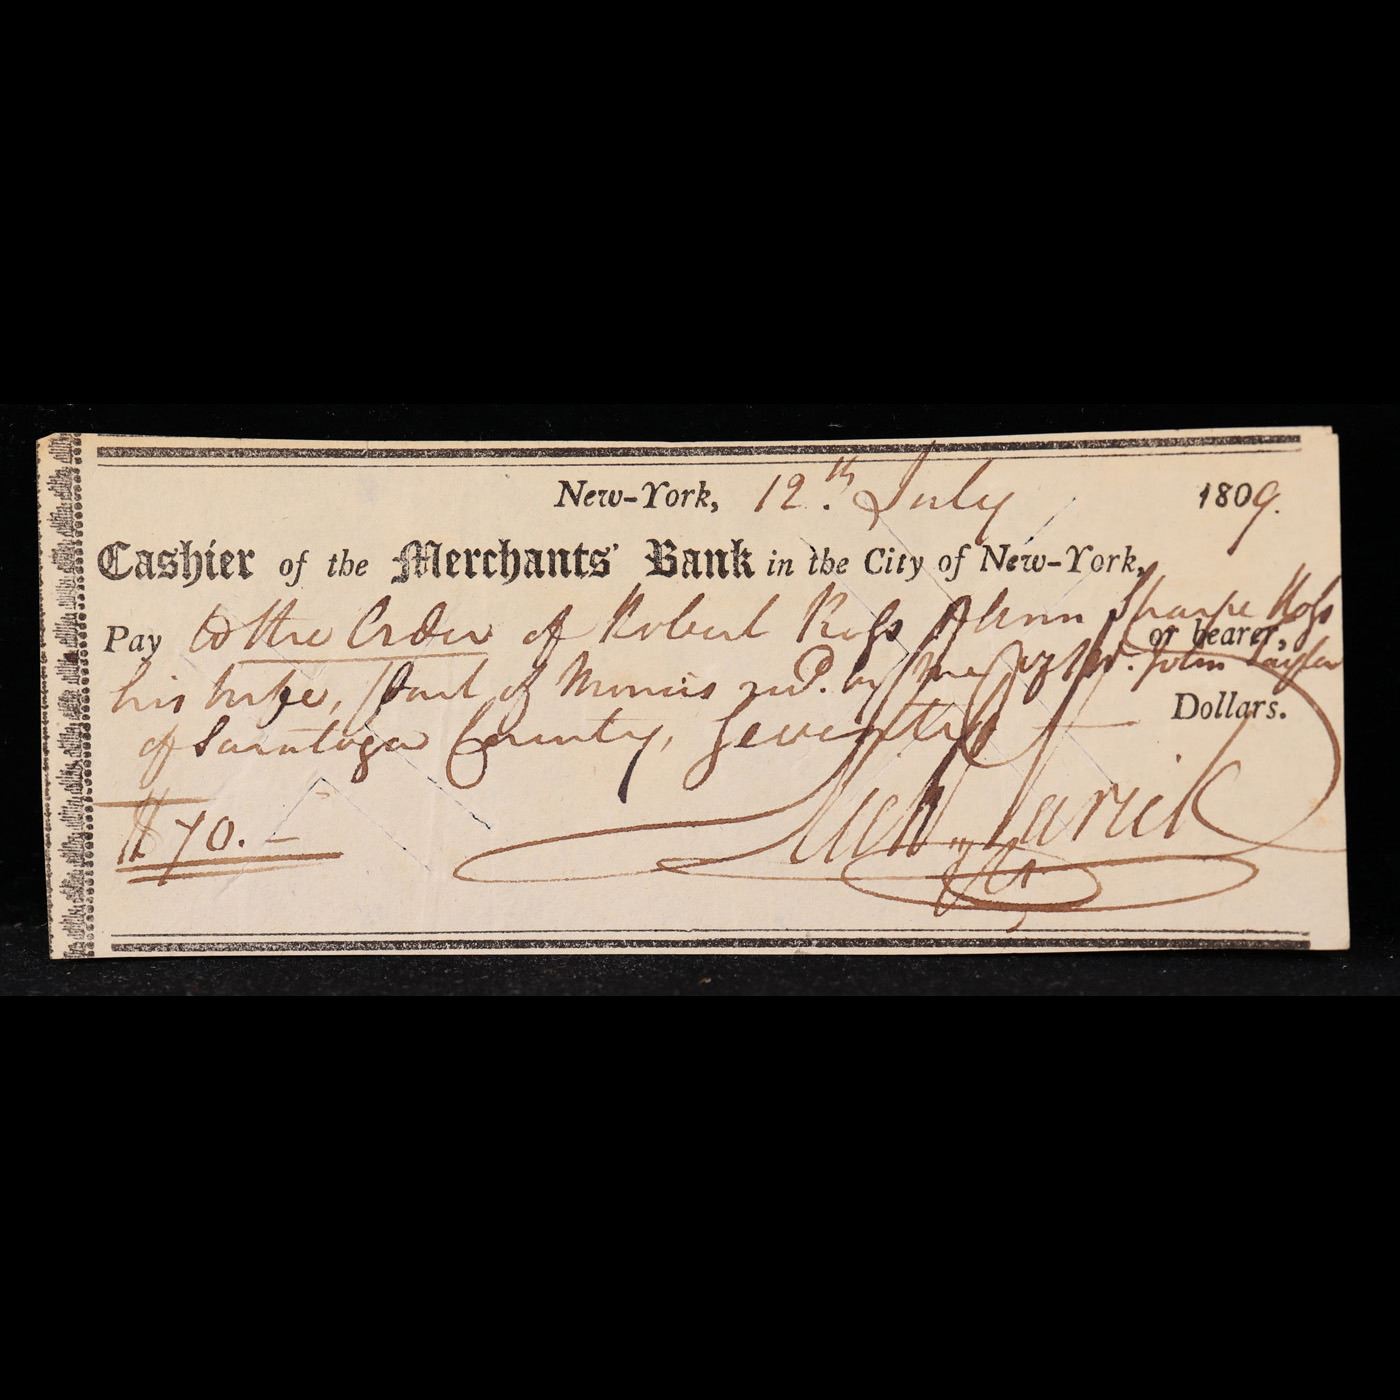 New-York, 12.th July 1809.
Cashier of the Merchants' Bank in the City of New-York,
Pay to the Order of Robert Ross & Ann Sharpe Ross or bearer,
his wife, part of Monies recd. by me of Mr. John Taylor
of Saratoga County, Seventy — Dollars.
$70.—
Richd. Varick